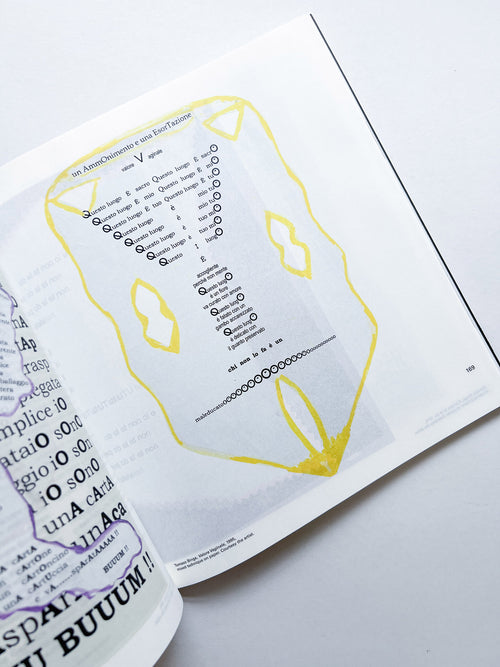 un AmmOnimento e una EsorTazione
valore V aginale
Questo luogo È sacro Questo luogo È sacrO
Questo luogo È mio Questo luogo È miO
Questo luogo È tuo Questo luogo È tuO
Questo luogo è mio tuO
Questo luogo è tuo miO
Questo luogo è tuo mO
Questo I lungO
È
accogliente
perché non mente
Questo luogO
è un fiore
va curato con amore
Questo luogO
è fatato con un
gambo accarezzato
Questo luogO
è delicato con
il guanto preservato
chi non lo fa è un
maleducatoOOOOOOOOOOOOOOOOOOOOOO
169
Tomaso Binga, Valore Vaginale, 1996,
mixed technique on paper. Courtesy the artist.
unA
tAp
rasp
piegata
mplice iO
ataiO sOnO
ggio iO sOnO
iO sOnO
unA cArtA
unAcA
unA cArtA
unA cArtOncino
unA cArtUccia
BUUUM !!
spAr
U BUUUM !!